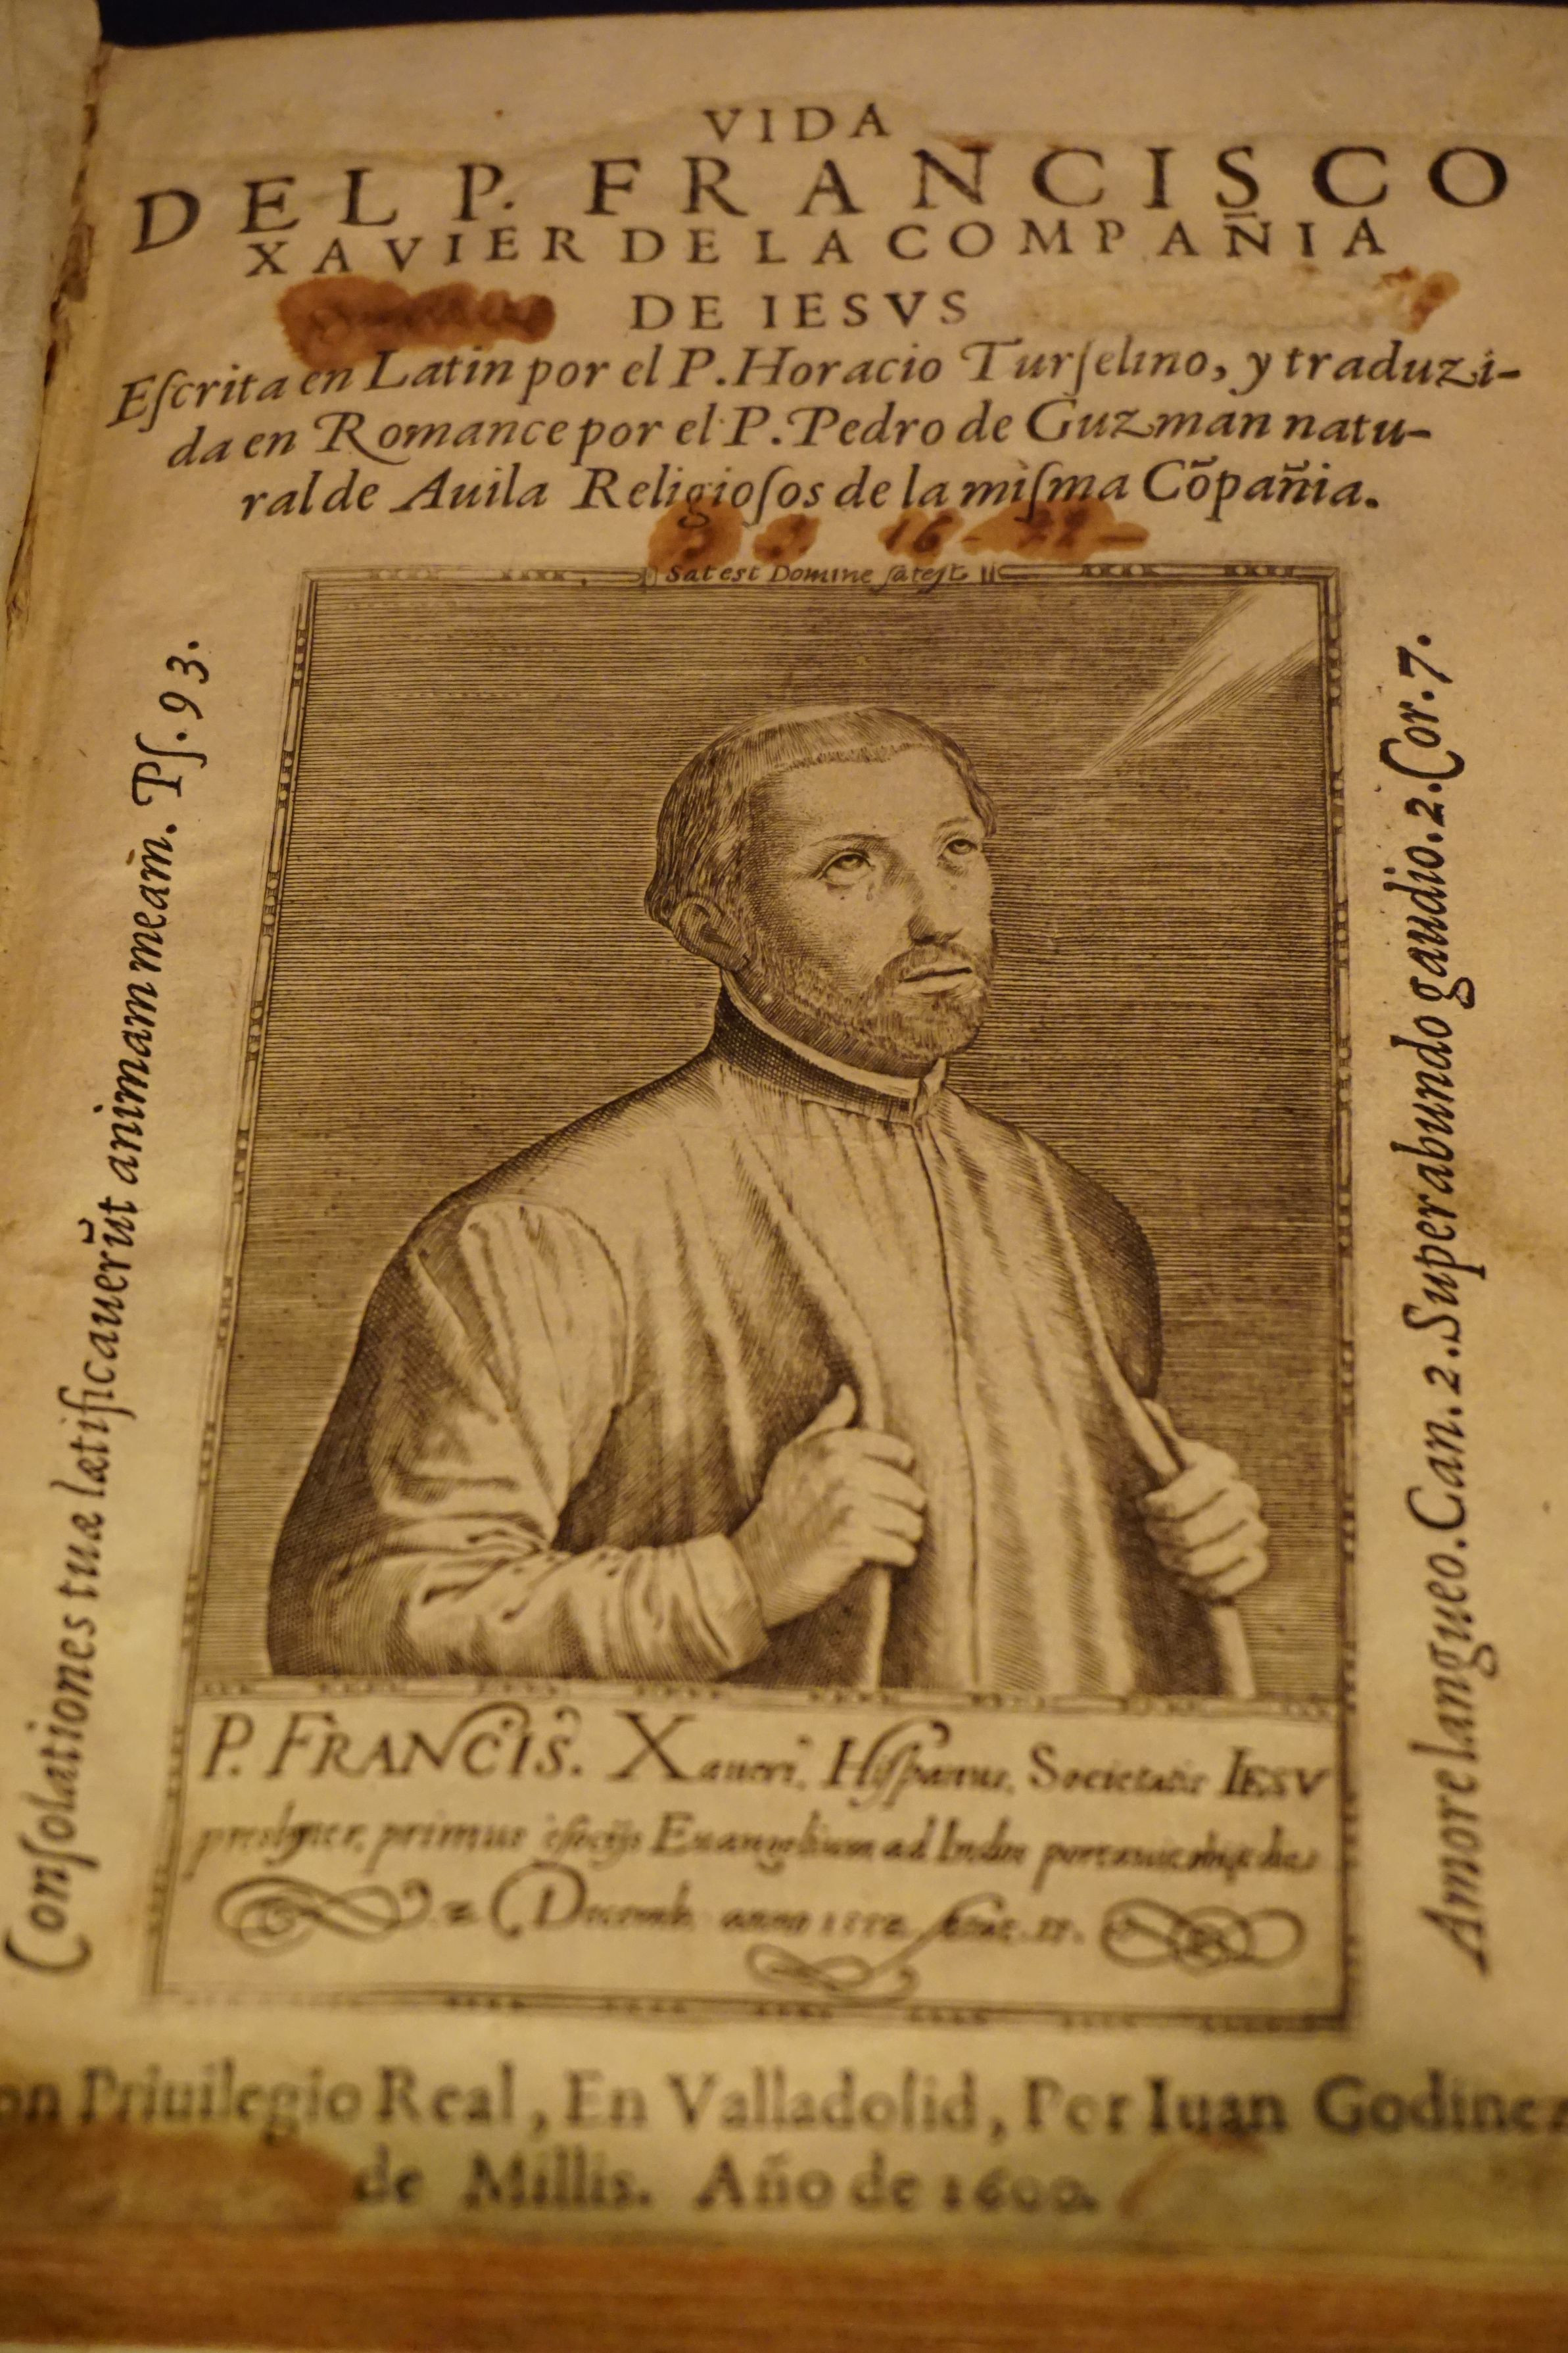 VIDA
DEL P. FRANCISCO
XAVIER DE LA COMPAÑIA
DE IESVS
Eſcrita en Latin por el P. Horacio Turſelino, y traduzi-
da en Romance por el P. Pedro de Guzman natu-
ral de Auila Religioſos de la miſma Cõpañia.
16-22-
Sat est Domine ſat eſt
Conſolationes tuæ lætificauerũt animam meam. Pſ. 93.
Amore langueo. Can. 2. Superabundo gaudio. 2. Cor. 7.
P. FRANCIS. Xaueri, Hiſpanus, Societatis IESV
primus Euangelium ad Indos
2 Decemb. anno 1552
on Priuilegio Real, En Valladolid, Por Iuan Godinez
de Millis. Año de 1600.